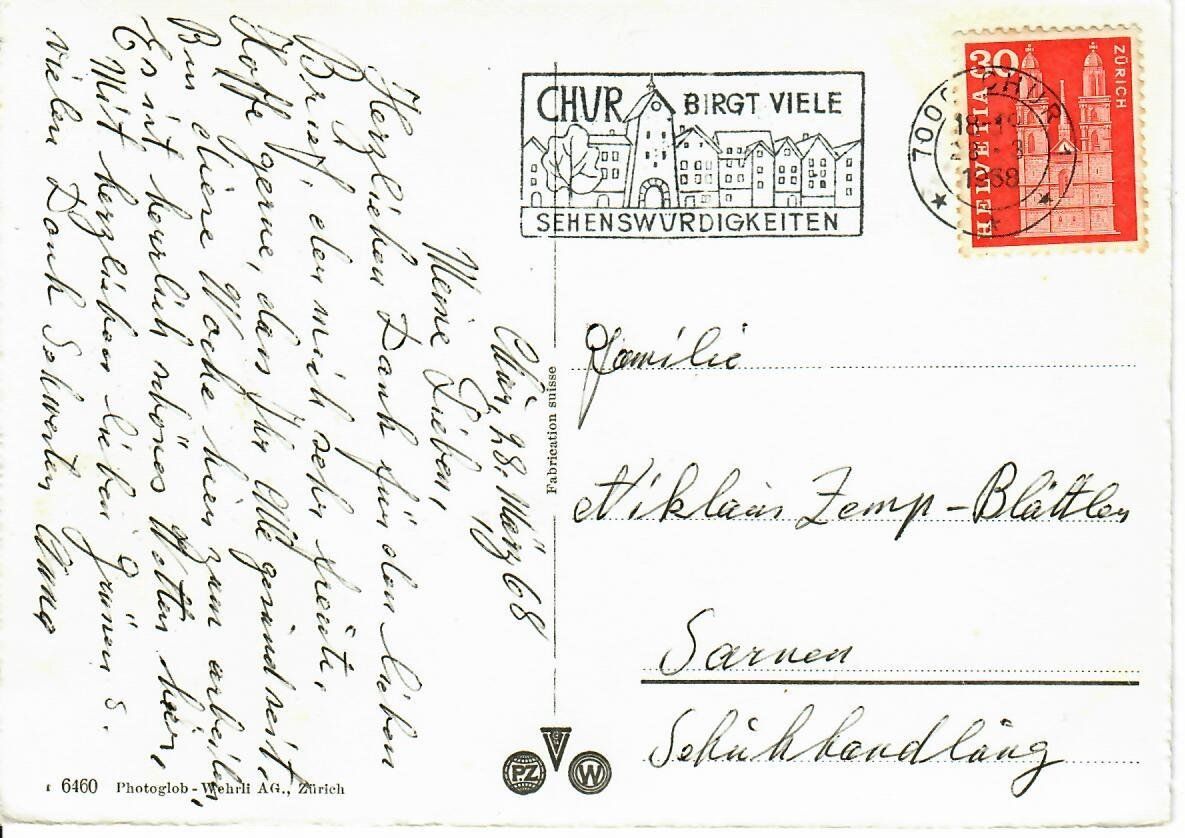 Chur, 28. März 68
Meine Lieben,
Herzlichen Dank für den lieben
Brief, der mich sehr freute.
Hoffe gerne, dass Ihr Alle gesund seit.
Bin diese Woche hier zum arbeiten,
Es ist herrlich schönes Wetter hier,
Mit herzlichen lieben Grüssen &
vielen Dank Schwester Anna
6460 Photoglob-Wehrli AG., Zürich
Fabrication suisse
PZ
W
CHUR BIRGT VIELE
SEHENSWÜRDIGKEITEN
7000 CHUR
18-19
28. 3
1968
30
HELVETIA
ZÜRICH
Familie
Niklaus Zemp-Blättler
Sarnen
Schuhhandlung